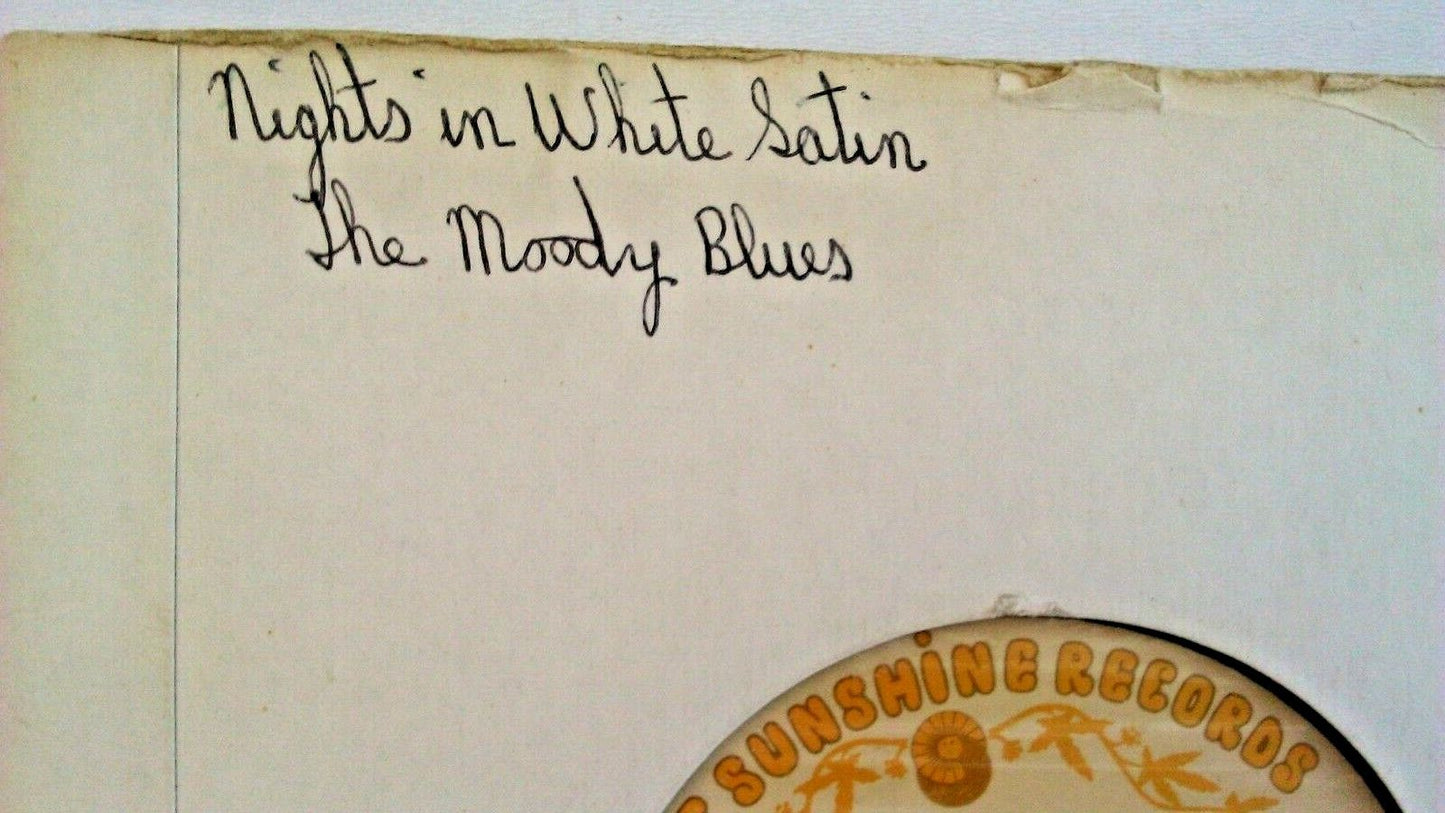 Nights in White Satin
The Moody Blues
SUNSHINE RECORDS